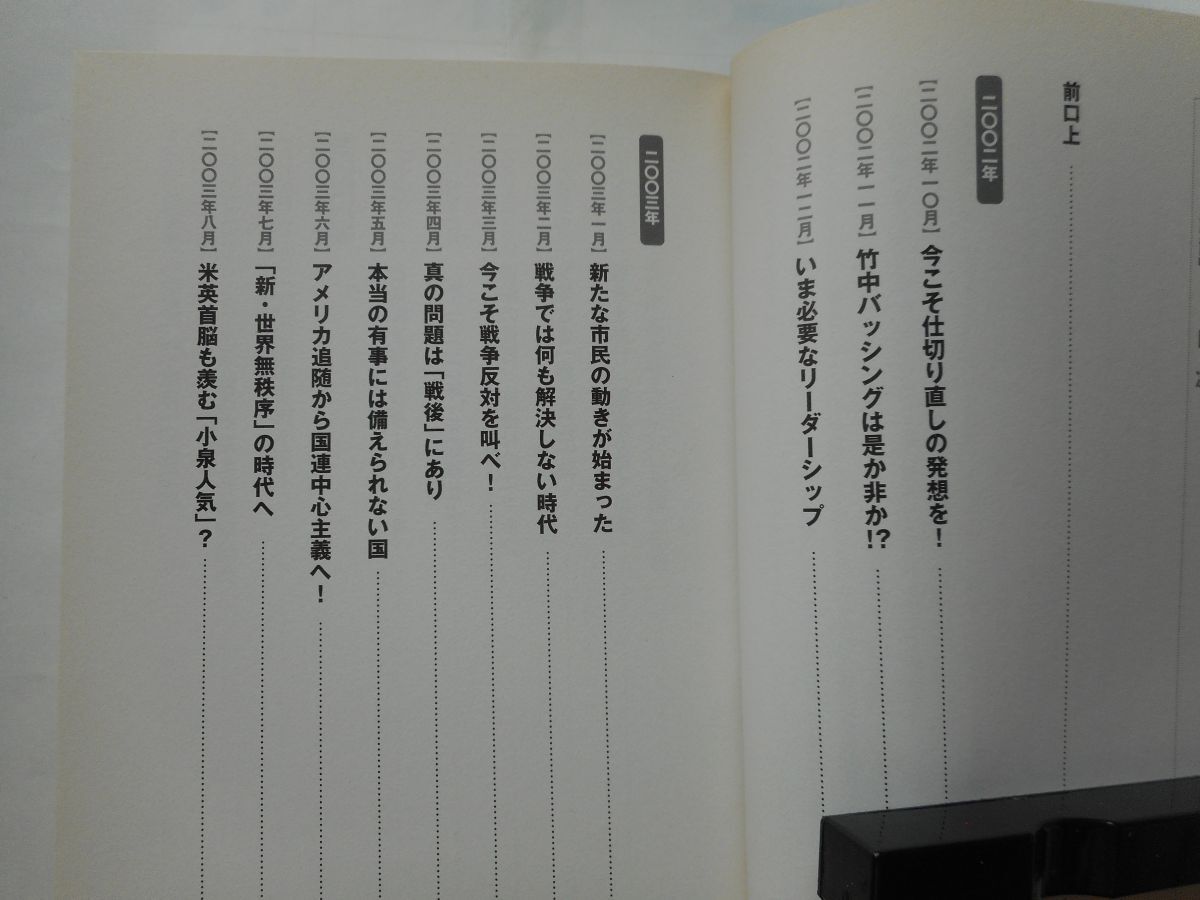 前口上
二〇〇二年
【二〇〇二年一〇月】今こそ仕切り直しの発想を！
【二〇〇二年一一月】竹中バッシングは是か非か!?
【二〇〇二年一二月】いま必要なリーダーシップ
二〇〇三年
【二〇〇三年一月】新たな市民の動きが始まった
【二〇〇三年二月】戦争では何も解決しない時代
【二〇〇三年三月】今こそ戦争反対を叫べ！
【二〇〇三年四月】真の問題は「戦後」にあり
【二〇〇三年五月】本当の有事には備えられない国
【二〇〇三年六月】アメリカ追随から国連中心主義へ！
【二〇〇三年七月】「新・世界無秩序」の時代へ
【二〇〇三年八月】米英首脳も羨む「小泉人気」？